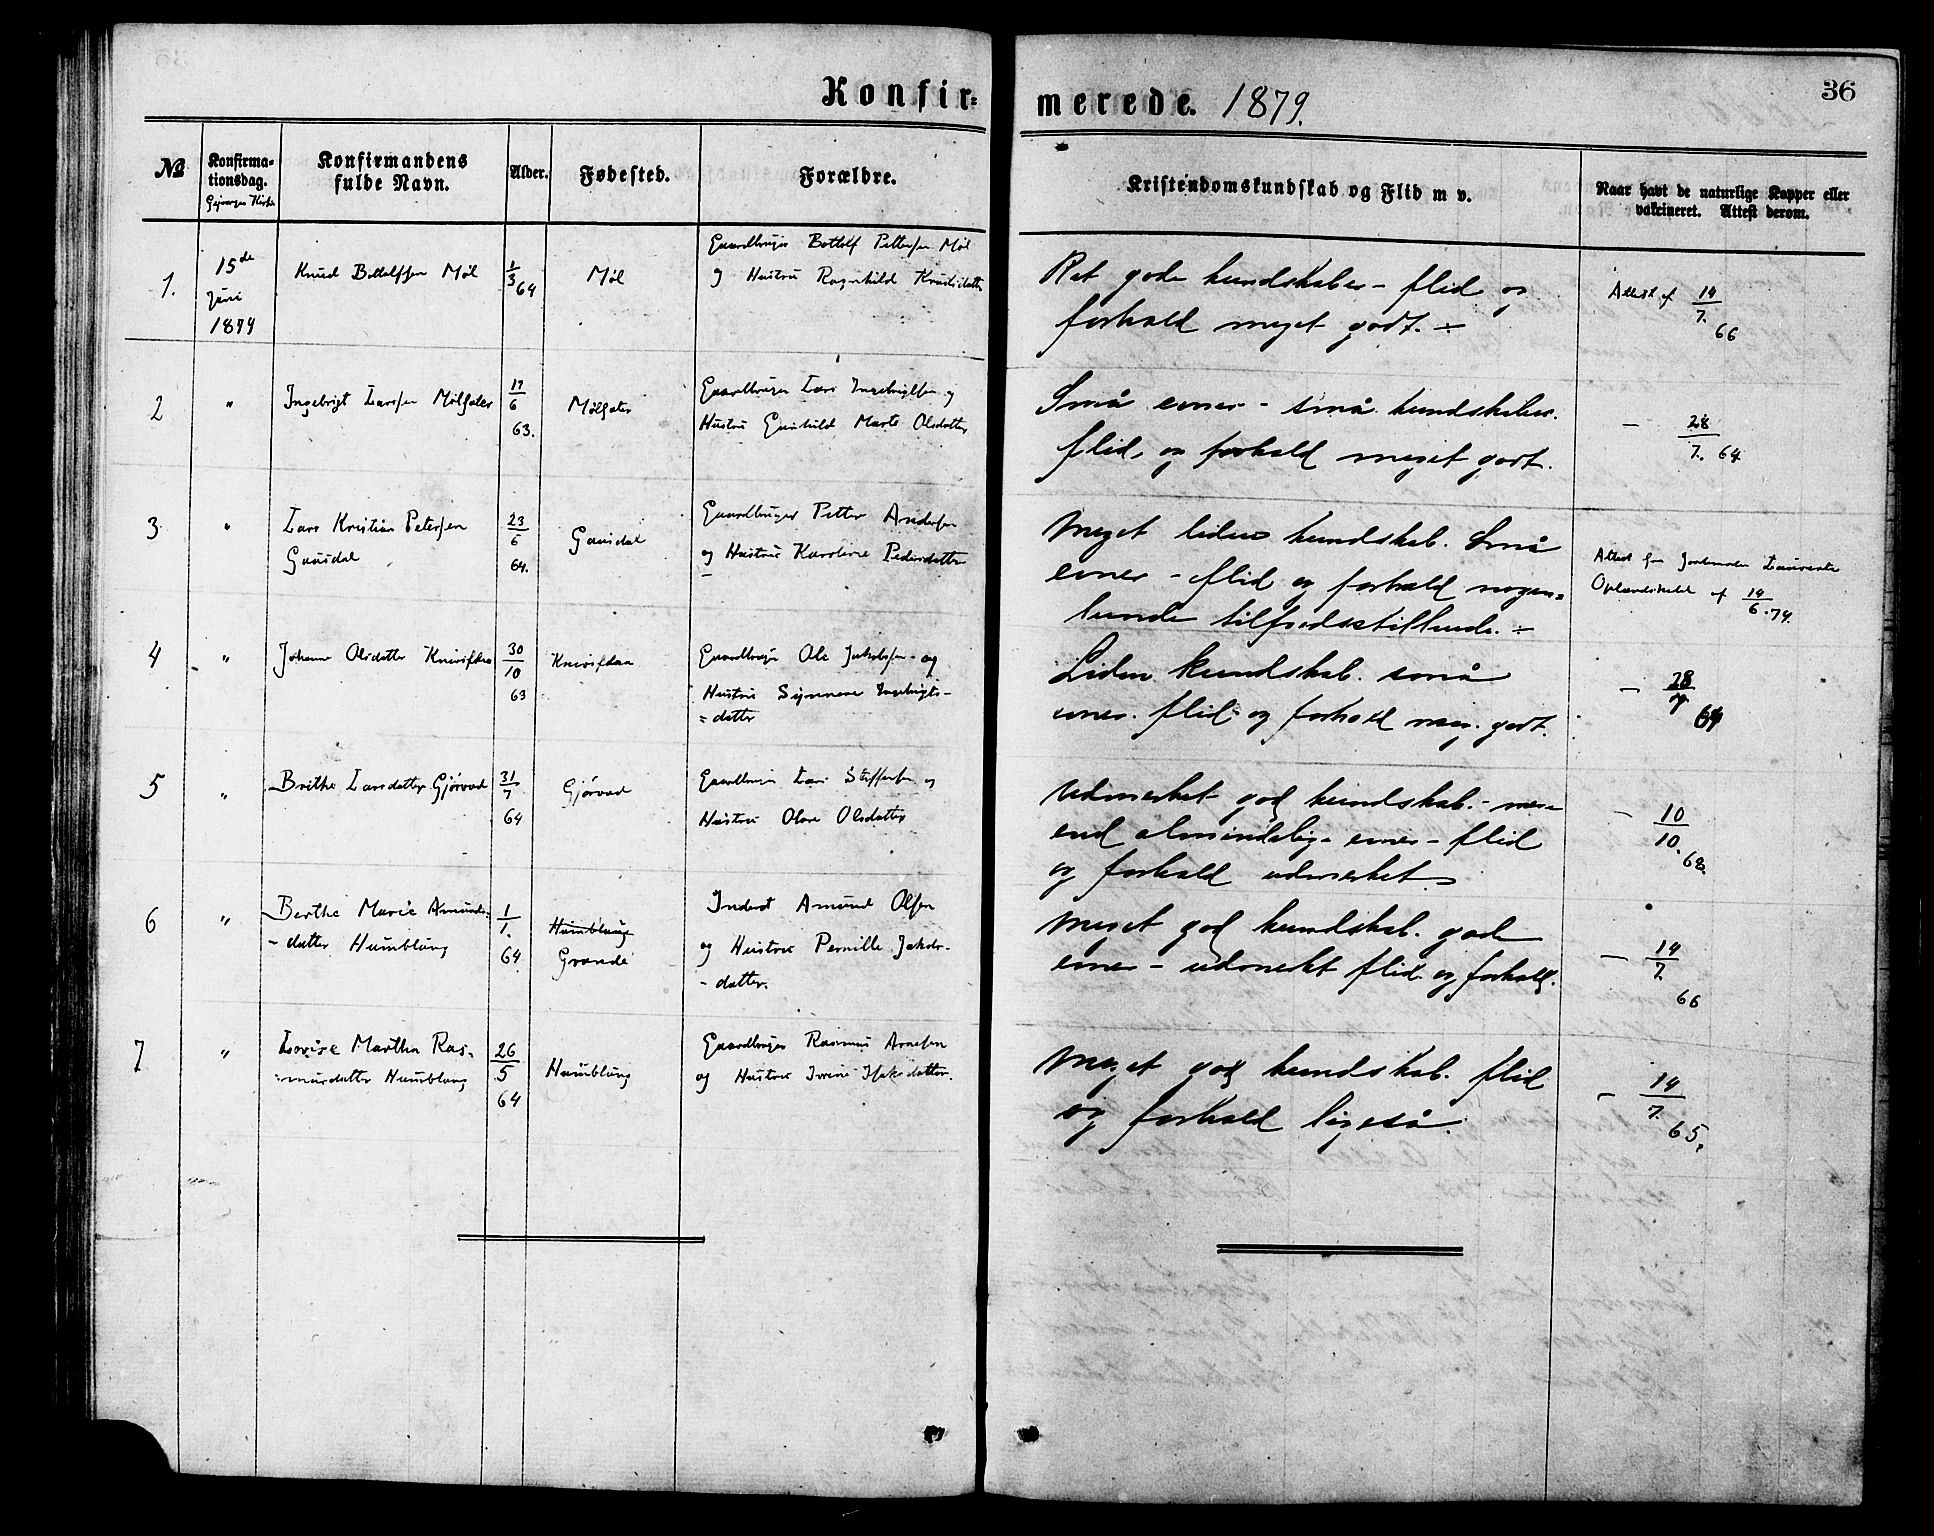 Konfir-
merede. 1879.
36
№
Konfirma-
tionsdag.
Konfirmandens
fulde Navn.
Alder.
Fødested.
Forældre.
Kristendomskundskab og Flid m v.
Naar havt de naturlige Kopper eller
vakcineret. Attest derom.
1.
15de
Juni
1879
Knud Bottolfsen Møl
1/3 64
Møl
Gaardbruger Bottolf Pettersen Møl
og Hustru Ragnhild Knudsdatter
Ret gode kundskaber - flid og
forhold meget godt. ÷
Attest af 14/7. 66
2
"
Ingebrigt Larssen Mølsæter
17/6 63.
Mølsæter
Gaardbruger Lars Ingebrigtsen og
Hustru Gunhild Marte Olsdatter
Små evner - små kundskaber.
flid, og forhold meget godt.
- 28/7. 64
3.
"
Lars Kristian Petersen
Gausdal
23/6 64.
Gausdal
Gaardbruger Petter Andersen
og Hustru Karoline Pedersdatter
Meget liden kundskab. Små
evner - flid og forhold nogen=
lunde tilfredsstillende. ÷
Attest fra Jordemoder
af 14/6. 74.
4
"
Johanne Olsdatter
30/10 63
Gaardbruger Ole Jakobsen og
Hustru Synneve Ingebrigts-
=datter
Liden kundskab. små
evner. flid og forhold meg. godt.
- 28/7 64
5
"
Brithe Larsdatter Gjørvad
31/7 64
Gjørvad
Gaardbruger Lars Steffensen og
Hustru Olave Olsdatter
Udmerket god kundskab. - mer
end almindelig evner - flid
og forhold udmerket
- 10/10. 68
6
"
Berthe Marie Amunds-
-datter Humblung
1/1. 64
Humblung
Grande
Inderst Amund Olsen
og Hustru Pernille Jakobs-
-datter.
Meget god kundskab. gode
evner - udmerkt flid og forhold.
- 14/7. 66
7
"
Lovise Martha Ras-
musdatter Humblung
26/5 64
Humblung
Gaardbruger Rasmus Arnesen
og Hustru Ivrine Isaksdatter.
Meget god kundskab. flid
og forhold ligeså.
- 14/7. 65.